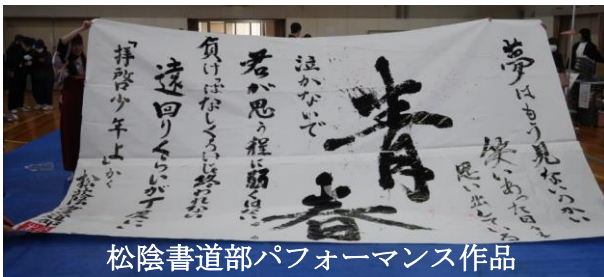 夢はもう見ないのかい
競いあった日を
思い出している
青春
泣かないで
君が思う程に弱くはない
負けっぱなしくらいじゃ終われない
遠回りくらいが丁度いい
「拝啓少年よ」
松陰書道部パフォーマンス作品